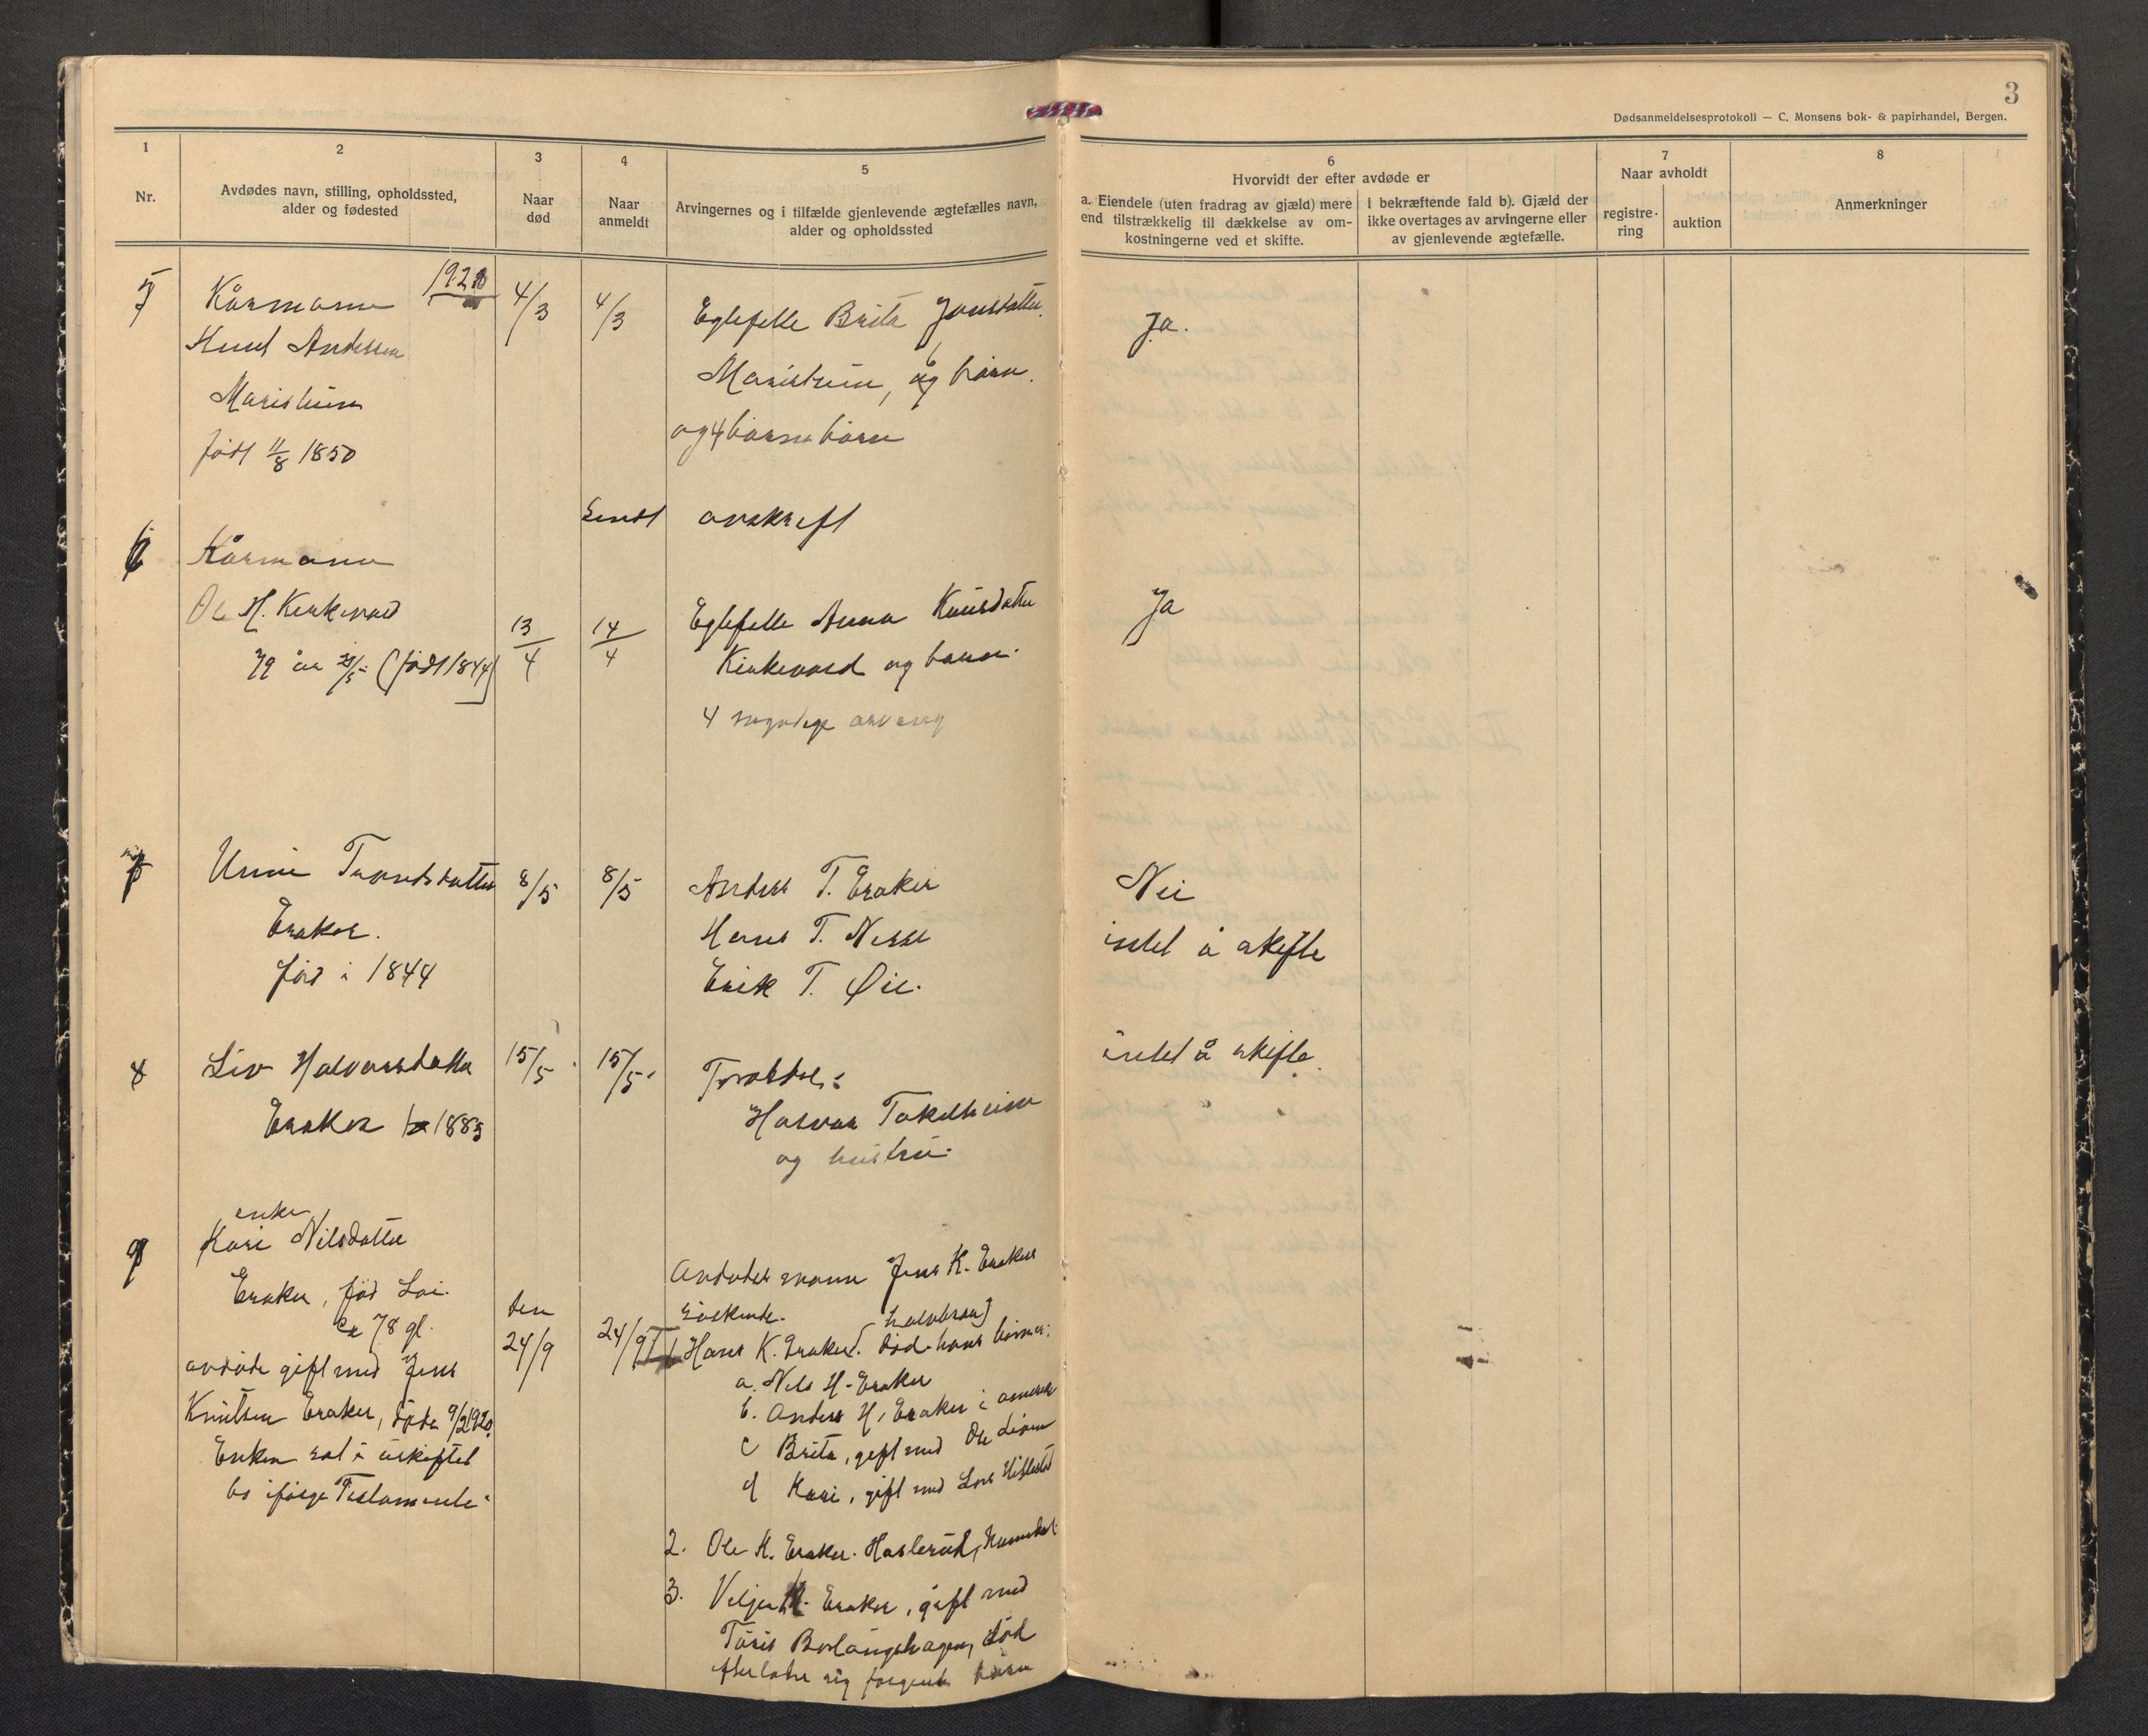 3
Dødsanmeldelsesprotokoll — C. Monsens bok- & papirhandel, Bergen.
1
Nr.
2
Avdødes navn, stilling, opholdssted,
alder og fødested
3
Naar
død
4
Naar
anmeldt
5
Arvingernes og i tilfælde gjenlevende ægtefælles navn,
alder og opholdssted
6
Hvorvidt der efter avdøde er
a. Eiendele (uten fradrag av gjæld) mere
end tilstrækkelig til dækkelse av om-
kostningerne ved et skifte.
I bekræftende fald b). Gjæld der
ikke overtages av arvingerne eller
av gjenlevende ægtefælle.
7
Naar avholdt
registre-
ring
auktion
8
Anmerkninger
5
Kårmann
Andersen
Maristuen
født 11/8 1850
4/3
4/3
Egtefelle Brita Jonsdatter
Maristuen, 6 børn.
og 4 barnebørn
Ja.
Sendt avskrift
6
Kårmann
Ole H. Kirkevold
79 år (født 1844)
13/4
14/4
Egtefelle Anna Knutsdatter
Kirkevold og barn.
4 myndige arving
Ja
7
Unni Trondsdatter
Eraker.
fød i 1844
8/5
8/5
Anders T. Eraker
Hans T. Nesse
Erik T. Øie.
Nei
intet å skifte
8
Liv Halvorsdatter
Eraker 1883
15/5
15/5
Foreldre:
Halvor
og hustru.
intet å skifte.
9
enke
Kari Nilsdatter
Eraker, fød Loi.
ca 78 gl.
avdøde gift med Jens
Knutsen Eraker, døde 9/2 1920.
Enken sat i uskiftet
bo ifølge Testamente.
den
24/9
24/9
Avdødes mann Jens K. Erakers
søskende.
halvbror]
1 Hans K. Eraker. død. hans børn:
a. Nils H. Eraker
b. Anders H. Eraker i amerika
c Brita, gift med Ole
d Kari, gift med Lars
2. Ole K. Eraker. Haslerud,
3. K. Eraker, gift med
død
efterlater sig følgende børn